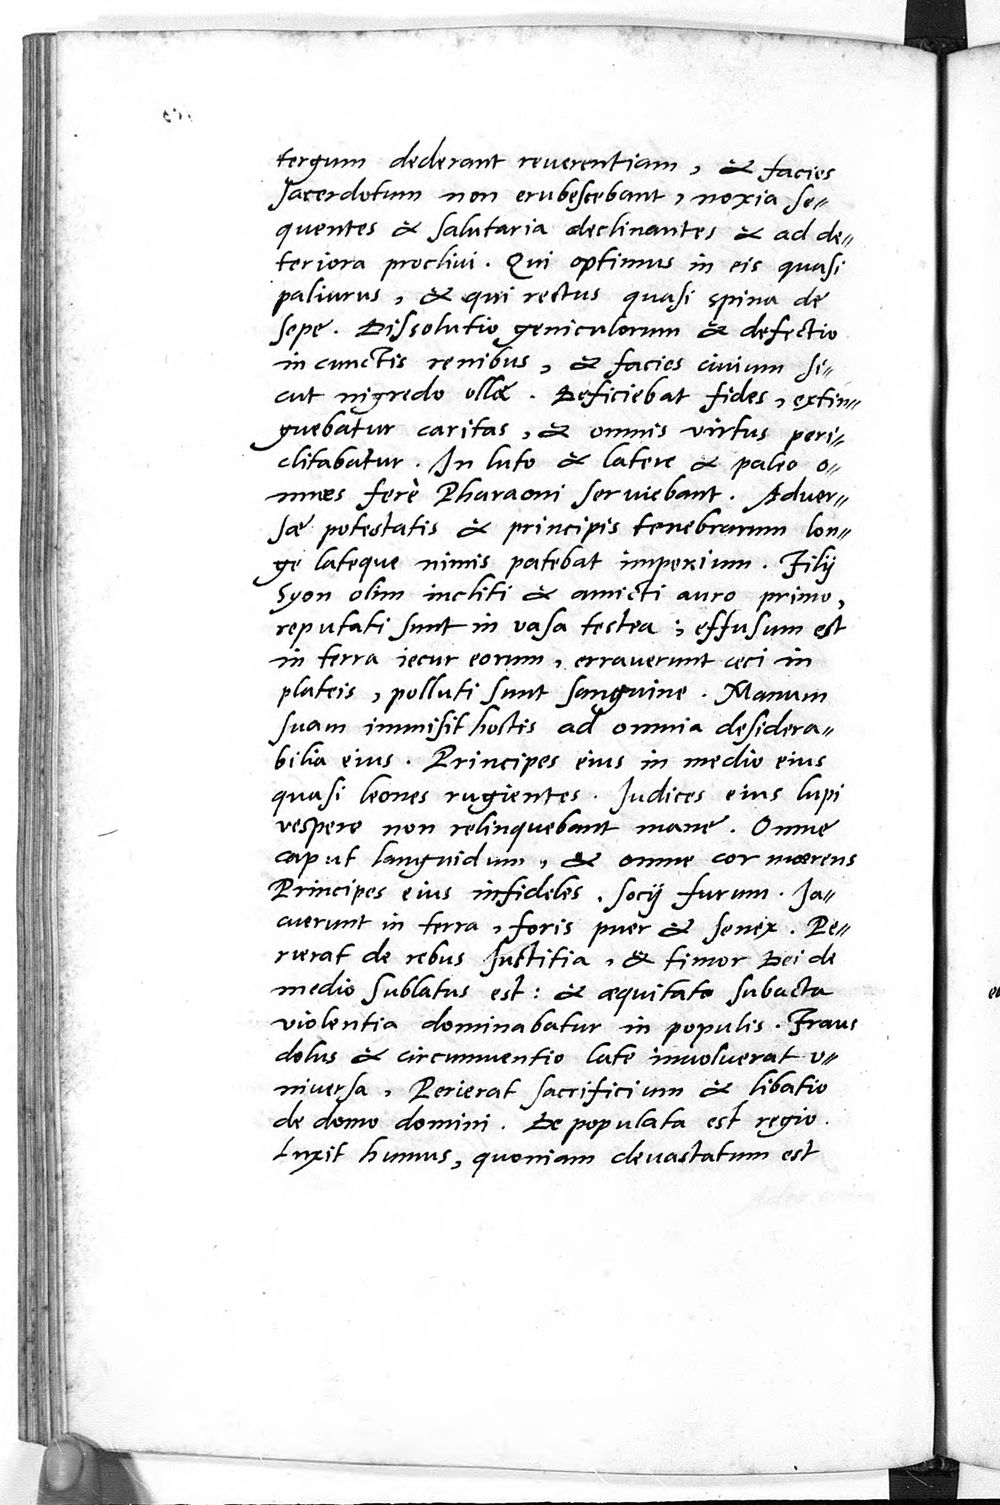 tergum dederant reuerentiam, & facies
sacerdotum non erubescebant, noxia se„
quentes & salutaria declinantes & ad de„
teriora procliui. Qui optimus in eis quasi
paliurus, & qui rectus quasi spina de
sepe. Dissolutio geniculorum & defectio
in cunctis renibus, & facies ciuium si„
cut nigredo ollæ. Deficiebat fides, extin„
guebatur caritas, & omnis virtus peri„
clitabatur. In luto & latere & paleo o„
mnes ferè Pharaoni seruiebant. Aduer„
sæ potestatis & principis tenebrarum lon„
ge lateque nimis patebat imperium. Filij
Syon olim incliti & amicti auro primo,
reputati sunt in vasa testea; effusum est
in terra iecur eorum, errauerunt cæci in
plateis, polluti sunt sanguine. Manum
suam immisit hostis ad omnia desidera„
bilia eius. Principes eius in medio eius
quasi leones rugientes. Iudices eius lupi
vespere non relinquebant mane. Omne
caput languidum, & omne cor mœrens
Principes eius infideles, socij furum. Ia„
cuerunt in terra, foris puer & senex. Pe„
rierat de rebus Justitia, & timor Dei de
medio sublatus est: & æquitate subacta
violentia dominabatur in populis. Fraus
dolus & circumuentio late inuoluerat v„
niuersa, Perierat sacrificium & libatio
de domo domini. Depopulata est regio.
Luxit humus, quoniam deuastatum est